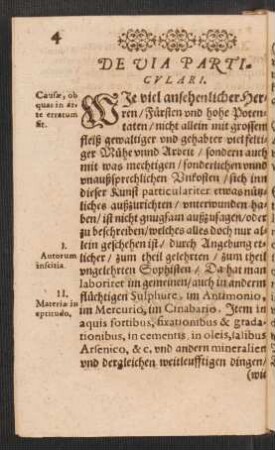 4
DE VIA PARTI-
CVLARI.
Causæ, ob
quas in ar-
te erratum
sit.
WJe viel ansehenlicher Her-
ren/ Fürsten vnd hohe Poten-
taten/ nicht allein mit grossem
fleiß gewaltiger vnd gehabter vielfelti-
ger Mühe vnnd Arbeit/ sondern auch
mit was mechtigen/ sonderlichen vnnd
vnaußsprechlichen Vnkosten/ sich inn
dieser Kunst particulariter etwas nütz-
liches außzurichten/ vnterwunden ha-
ben/ ist nicht gnugsam außzusagen/ oder
zu beschreiben/ welches alles doch nur al-
lein geschehen ist/ durch Angebung et-
licher/ zum theil gelehrten/ zum theil
vngelehrten Sophisten/ Da hat man
laboriret im gemeinen/ auch in andern
flüchtigen Sulphure, im Antimonio,
im Mercurio, im Cinabario. Item in
aquis fortibus, fixationibus & grada-
tionibus, in cementis, in oleis, salibus
Arsenico, & c. vnd andern mineralien
vnd dergleichen weitleufftigen dingen/
(wie
I.
Autorum
inscitia.
II.
Materiæ in
eptitudo.